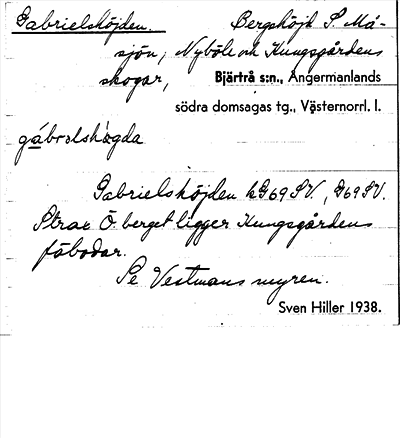 Gabrielshöjden. Bergshöjd S. Må-
sjön, Nyböle och Kungsgårdens
skogar, Bjärtrå s:n., Ångermanlands
södra domsagas tg., Västernorrl. l.
gábrəlshögda
Gabrielshöjden kG69SV., G69SV.
Strax Ö. berget ligger Kungsgårdens
fäbodar.
Se Vestmansmyren.
Sven Hiller 1938.